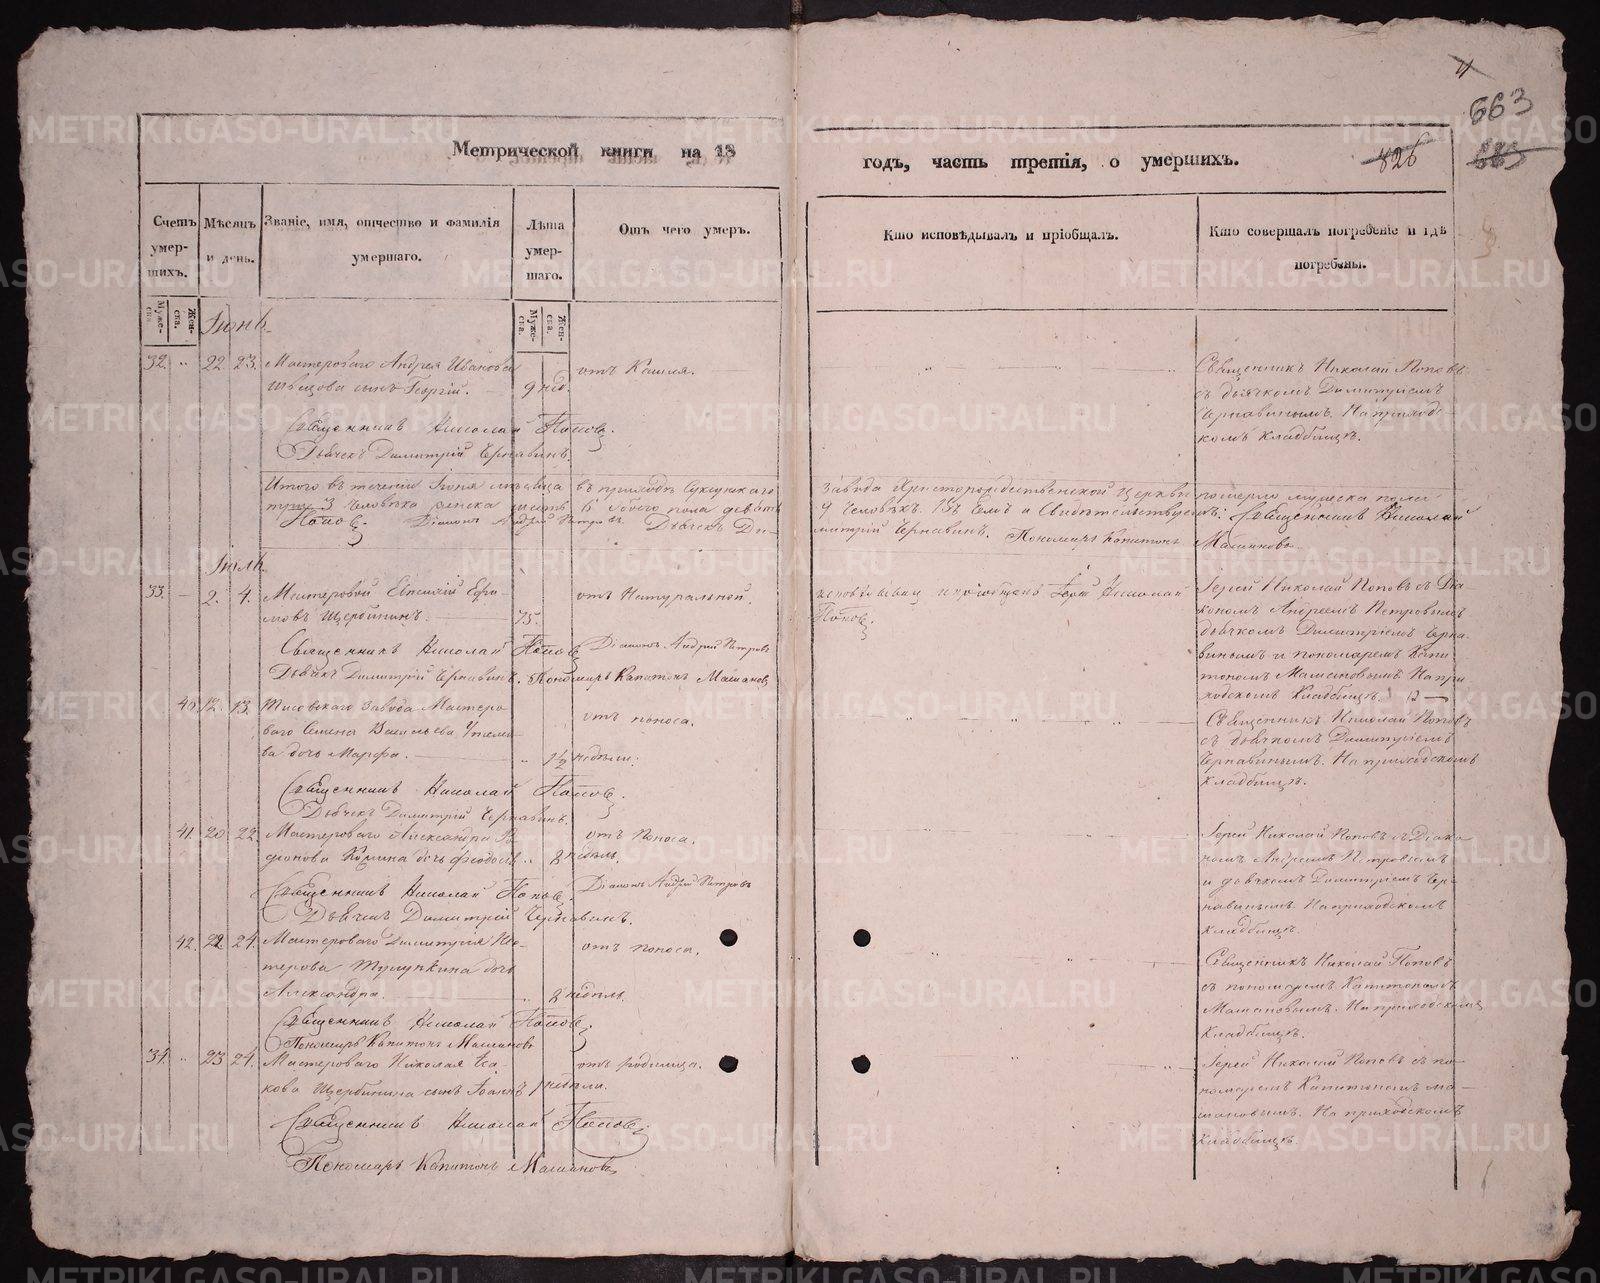 4
663
663
826
Метрической книги на 18
годъ, часть третія, о умершихъ.
Счетъ умер-шихъ.
Мѣсяцъ и день.
Званіе, имя, отчество и фамилія умершаго.
Лѣта умер-шаго.
Отъ чего умеръ.
Кто исповѣдывалъ и пріобщалъ.
Кто совершалъ погребеніе и гдѣ погребены.
Муже-ска.
Жен-ска.
Муже-ска.
Жен-ска.
Іюнь
32. " 22 23. Мастероваго Андрея Иванова
Швецова сынъ Георгій. 9 нед.
отъ Кашля.
Священникъ Николай Поповъ
съ дьячкомъ Димитріемъ
Чернавинымъ. На приход-
комъ кладбищѣ.
Священникъ Николай Поповъ.
Дьячекъ Димитрій Чернавинъ.
Итого въ теченіи Іюня мѣсяца въ приходѣ Суксунскаго
завода Христорождественской Церкви померло мужеска пола
три 3 человѣка женска шесть 6 обоего пола девять
9 человѣкъ. Въ чемъ и свидѣтельствуемъ: Священникъ Николай
Поповъ. Діаконъ Андрей Петровъ Дьячекъ Ди-
митрій Чернавинъ. Пономарь Капитонъ Машановъ
Іюль
33. — 2. 4. Мастеровой Евгеній Ефи-
мовъ Щербининъ. 75.
отъ Натуральной.
исповѣдывал и пріобщалъ Іерей Николай
Поповъ.
Іерей Николай Поповъ съ Діа
кономъ Андреемъ Петровымъ
дьячкомъ Димитріемъ Черна-
винымъ и пономаремъ Капи
тономъ Машановымъ На при-
ходскомъ Кладбищѣ.
Священникъ Николай Поповъ Діаконъ Андрей Петровъ
Дьячекъ Димитрій Чернавинъ. Пономарь Капитонъ Машановъ
40 12. 13. Тисовскаго завода Мастеро
ваго Семена Васильева
ва дочь Марфа. " 1½ недѣли.
отъ поноса.
Священникъ Николай Поповъ
съ дьячкомъ Димитріемъ
Чернавинымъ. На приходскомъ
кладбищѣ.
Священникъ Николай Поповъ.
Дьячекъ Димитрій Чернавинъ.
41. 20 22. Мастероваго Александра
дочь 8 недѣль.
отъ Поноса.
Іерей Николай Поповъ съ Діако
номъ Андреемъ Петровымъ
и дьячкомъ Димитріемъ Чер-
навинымъ. На приходскомъ
кладбищѣ.
Священникъ Николай Поповъ. Діаконъ Андрей Петровъ
Дьячекъ Димитрій Чернавинъ.
42. 22 24. Мастероваго Димитрія
дочь
Александра. " 8 недѣль.
отъ поноса.
Священникъ Николай Поповъ
съ пономаремъ Капитономъ
Машановымъ. На приходскомъ
кладбищѣ.
Священникъ Николай Поповъ.
Пономарь Капитонъ Машановъ
34. " 23 24. Мастероваго Николая Иса-
кова Щербинина сынъ Іоаннъ 1 недѣли.
отъ родимца.
Іерей Николай Поповъ съ по-
номаремъ Капитономъ Ма-
шановымъ. На приходскомъ
кладбищѣ.
Священникъ Николай Поповъ
Пономарь Капитонъ Машановъ
METRIKI.GASO-URAL.RU